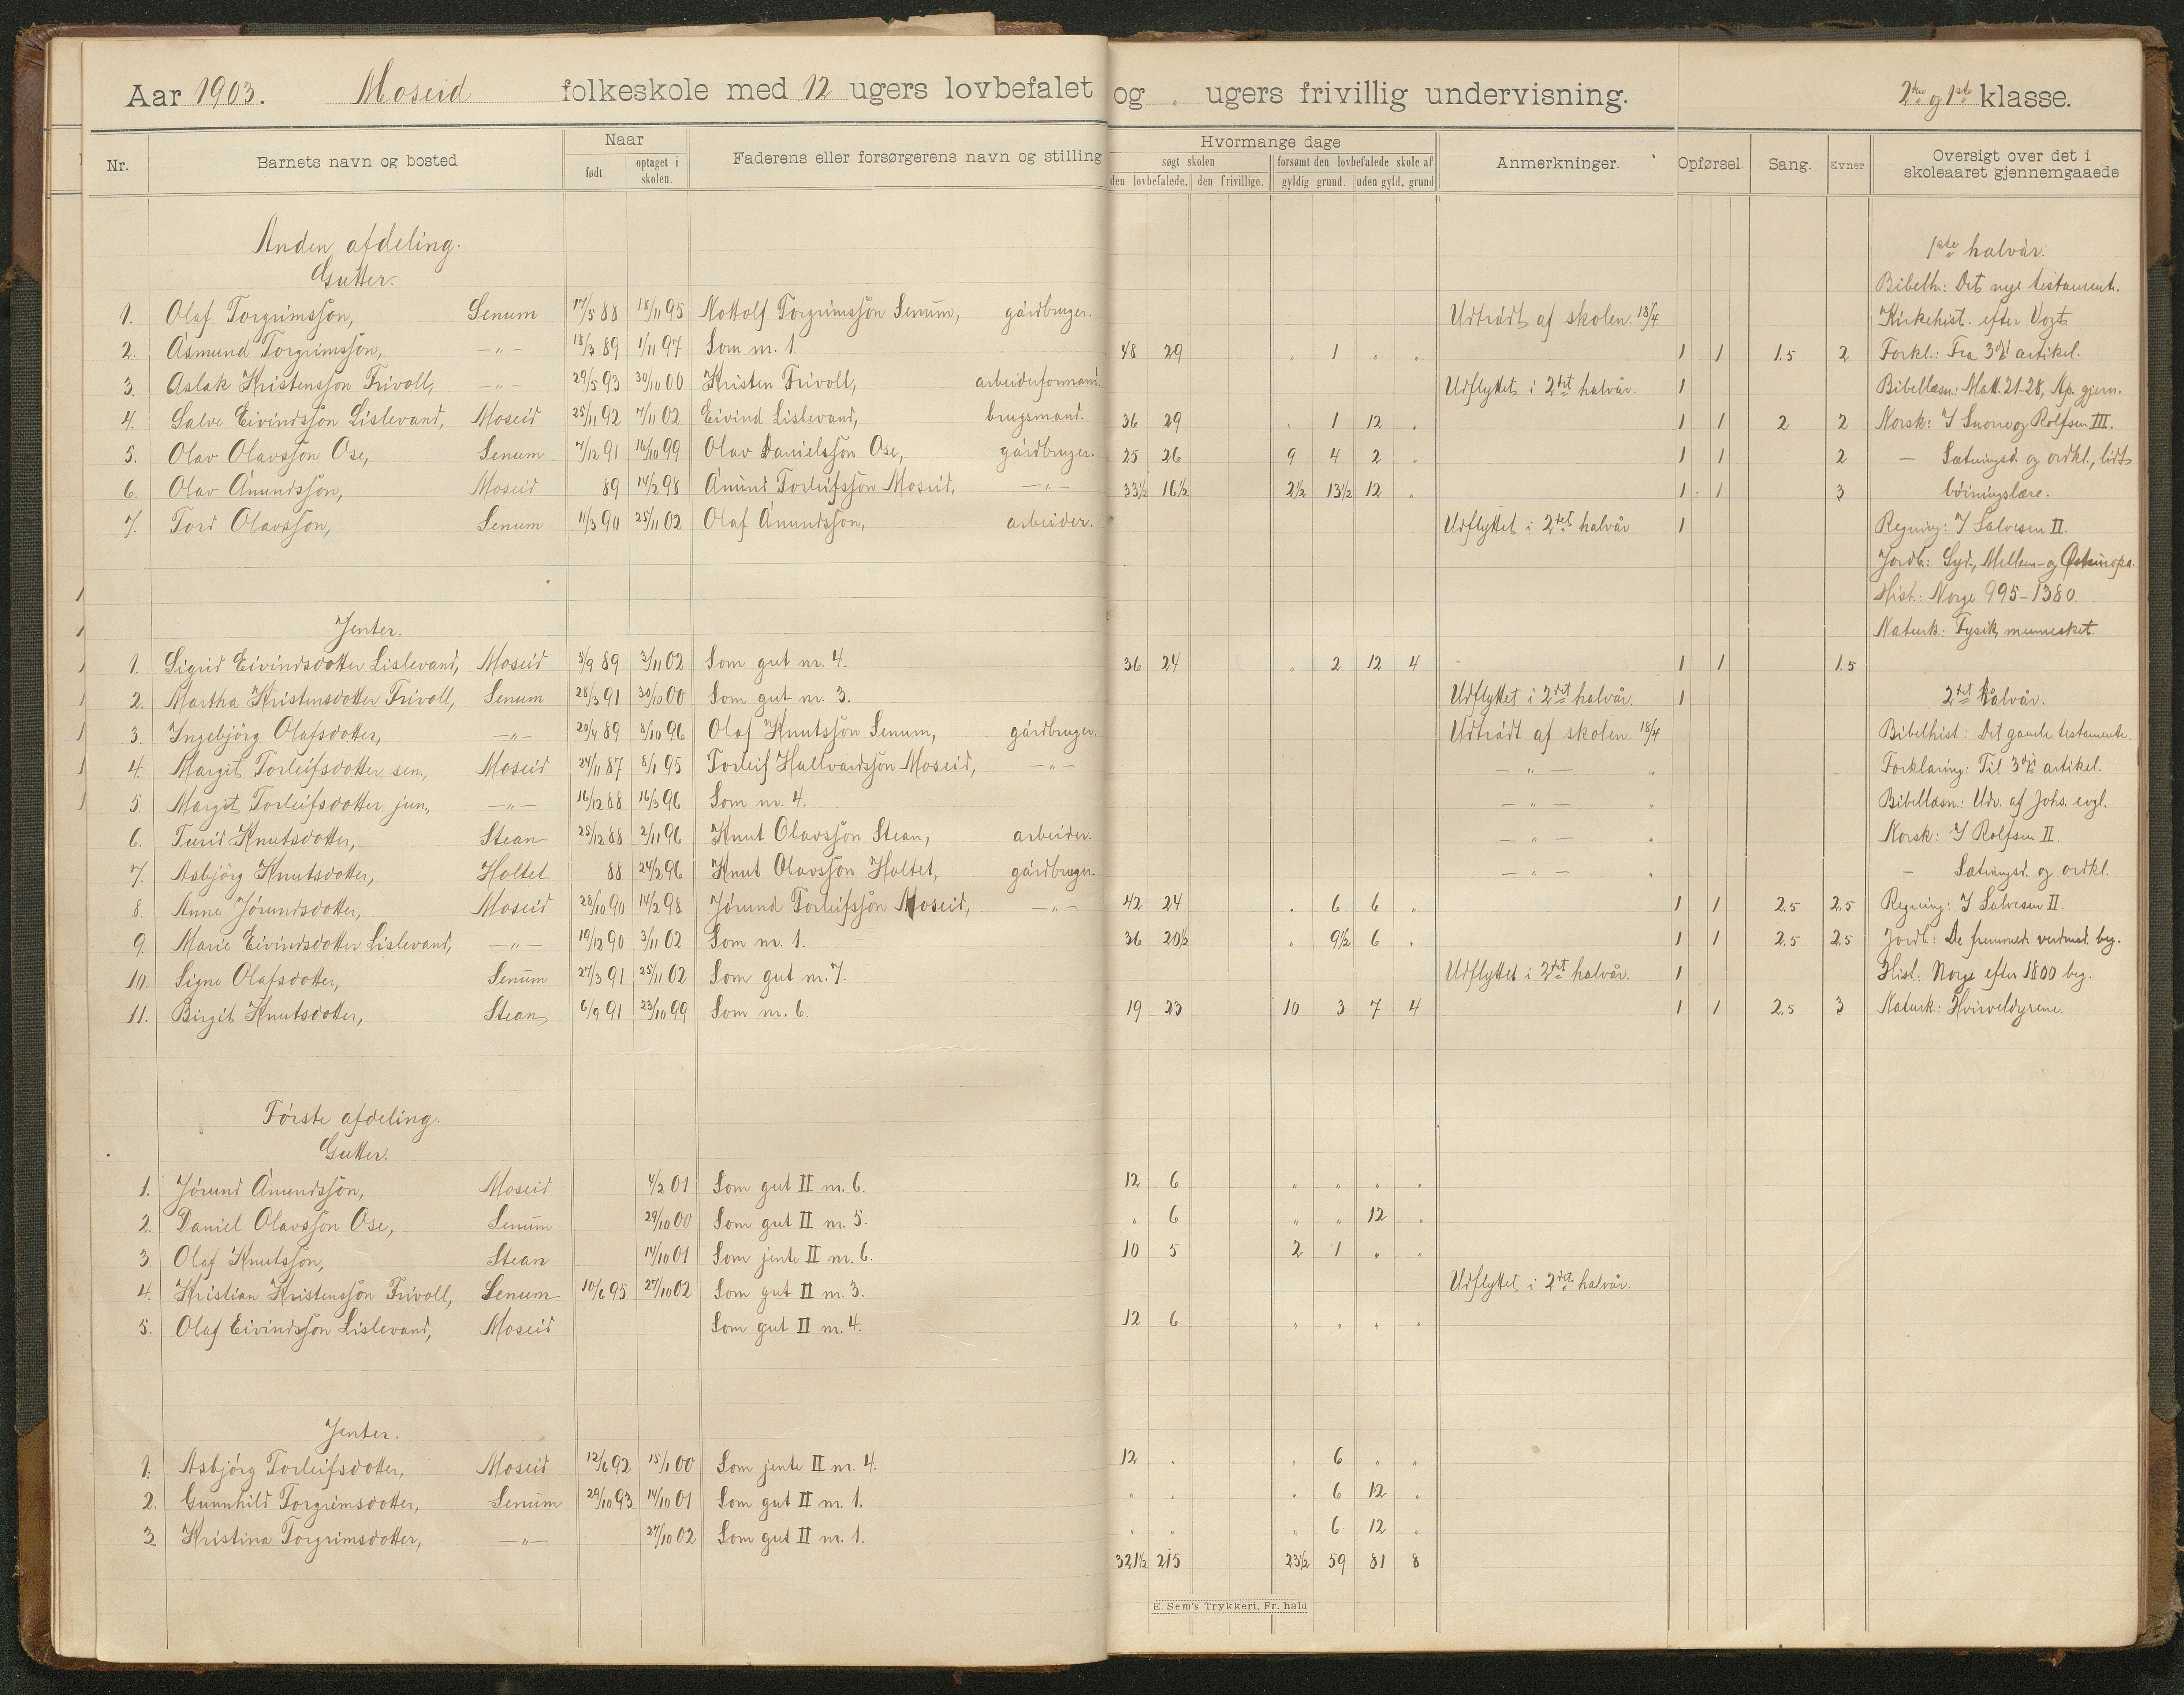 Aar 1903. Moseid folkeskole med 12 ugers lovbefalet og „ ugers frivillig undervisning. 2den og 1ste klasse.
Nr. Barnets navn og bosted Naar født. optaget i skolen. Faderens eller forsørgerens navn og stilling Hvormange dage søgt skolen den lovbefalede. den frivillige. forsømt den lovbefalede skole af gyldig grund. uden gyld. grund Anmerkninger. Opførsel. Sang. Evner Oversigt over det i skoleaaret gjennemgaaede
Anden afdeling. 1ste halvår.
Gutter. Bibelh.: Det nye testament.
1. Olaf Torgrimssøn, Senum 17/5 88 18/11 95 Nottolf Torgrimssøn Senum, gårdbruger. Udtrådt af skolen. 18/4 Kirkehist. efter Vogt
2. Åsmund Torgrimssøn, -„- 18/3 89 1/11 97 Som nr. 1. 48 29 „ 1 „ „ 1 1 1.5 2 Forkl.: Fra 3die artikel.
3. Aslak Kristenssøn Frivoll, -„- 29/5 93 30/10 00 Kristen Frivoll, arbeiderformand. Udflyttet i 2det halvår. 1 Bibellæsn.: Matt. 21-28, Ap. gjern.
4. Salve Eivindssøn Lislevand, Moseid 25/11 92 7/11 02 Eivind Lislevand, brugsmand. 36 29 „ 1 12 „ 1 1 2 2 Norsk: I Snorre og Rolfsen III.
5. Olav Olavssøn Ose, Senum 7/12 91 16/10 99 Olav Danielssøn Ose, gårdbruger. 25 26 9 4 2 „ 1 1 2 — Sætningsd. og ordkl., lidt
6. Olav Ånundssøn, Moseid 89 14/2 98 Ånund Torleifssøn Moseid, -„- 33½ 16½ 2½ 13½ 12 „ 1 1 3 bøiningslære.
7. Tord Olavssøn, Senum 11/3 90 25/11 02 Olaf Ånundssøn, arbeider. Udflyttet i 2det halvår 1 Regning: I Salvesen II.
Jordb.: Syd-, Mellem- og Østeuropa.
Hist.: Norge 995-1380.
Jenter. Naturk.: Fysik, mennesket.
1. Sigrid Eivindsdotter Lislevand, Moseid 5/9 89 3/11 02 Som gut nr. 4. 36 24 „ 2 12 4 1 1 1.5
2. Martha Kristensdotter Frivoll, Senum 28/3 91 30/10 00 Som gut nr. 3. Udflyttet i 2det halvår. 1 2det halvår.
3. Ingebjörg Olafsdotter, -„- 20/4 89 8/10 96 Olaf Knutssøn Senum, gårdbruger. Udtrådt af skolen. 18/4 Bibelhist: Det gamle testamente.
4. Margit Torleifsdotter sen., Moseid 24/11 87 8/1 95 Torleif Hallvardssøn Moseid, -„- — „ — „ Forklaring: Til 3die artikel.
5. Margit Torleifsdotter jun., -„- 16/12 88 16/3 96 Som nr. 4. — „ — „ Bibellæsn.: Udv. af Johs. evgl.
6. Turid Knutsdotter, Stean 25/12 88 2/11 96 Knut Olavssøn Stean, arbeider. — „ — „ Norsk: I Rolfsen II.
7. Asbjörg Knutsdotter, Holtet 88 24/2 96 Knut Olavssøn Holtet, gårdbruger. — „ — „ — Sætningsd. og ordkl.
8. Anne Jørundsdotter, Moseid 28/10 90 14/2 98 Jørund Torleifssøn Moseid, -„- 42 24 „ 6 6 „ 1 1 2.5 2.5 Regning: I Salvesen II.
9. Marie Eivindsdotter Lislevand, -„- 19/12 90 3/11 02 Som nr. 1. 36 20½ „ 9½ 6 „ 1 1 2.5 2.5 Jordb: De fremmede verdensd. beg.
10. Signe Olafsdotter, Senum 27/3 91 25/11 02 Som gut nr. 7. Udflyttet i 2det halvår. 1 Hist: Norge efter 1800 beg.
11. Birgit Knutsdotter, Stean 6/9 91 23/10 99 Som nr. 6. 19 23 10 3 7 4 1 1 2.5 3 Naturk: Hvirveldyrene.
Første afdeling.
Gutter.
1. Jørund Ånundssøn, Moseid 4/2 01 Som gut II nr. 6. 12 6 „ „ „ „
2. Daniel Olavssøn Ose, Senum 29/10 00 Som gut II nr. 5. „ 6 „ „ 12 „
3. Olaf Knutssøn, Stean 14/10 01 Som jente II nr. 6. 10 5 2 1 „ „
4. Kristian Kristenssøn Frivoll, Senum 10/6 95 27/10 02 Som gut II nr. 3. Udflyttet i 2det halvår.
5. Olaf Eivindssøn Lislevand, Moseid Som gut II nr. 4. 12 6 „ „ „ „
Jenter.
1. Asbjörg Torleifsdotter, Moseid 12/6 92 15/1 00 Som jente II nr. 4. 12 „ „ 6 „ „
2. Gunnhild Torgrimsdotter, Senum 29/10 93 14/10 01 Som gut II nr. 1. „ „ „ 6 12 „
3. Kristina Torgrimsdotter, -„- 27/10 02 Som gut II nr. 1. „ „ „ 6 12 „
321½ 215 23½ 59 81 8
E. Sem's Trykkeri, Fr. hald